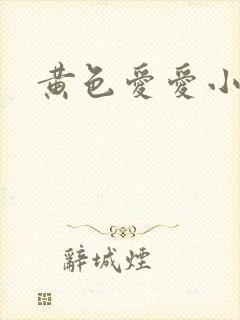 黄色爱爱小
辭城煙